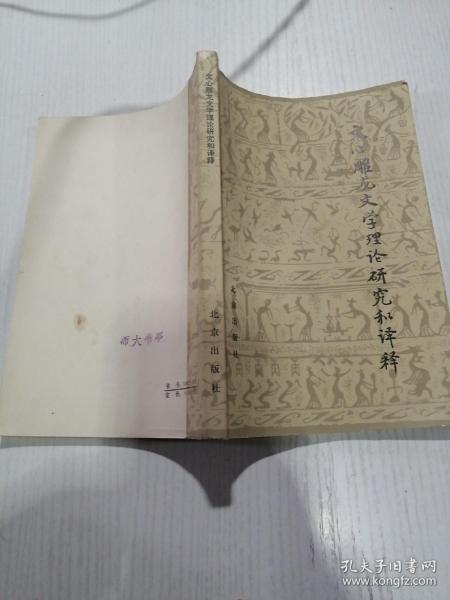 文心雕龙文学理论研究和译释
北京出版社
文心雕龙文学理论研究和译释
北京出版社
师大书亭
书号
定价
孔夫子旧书网
www.kongfz.com